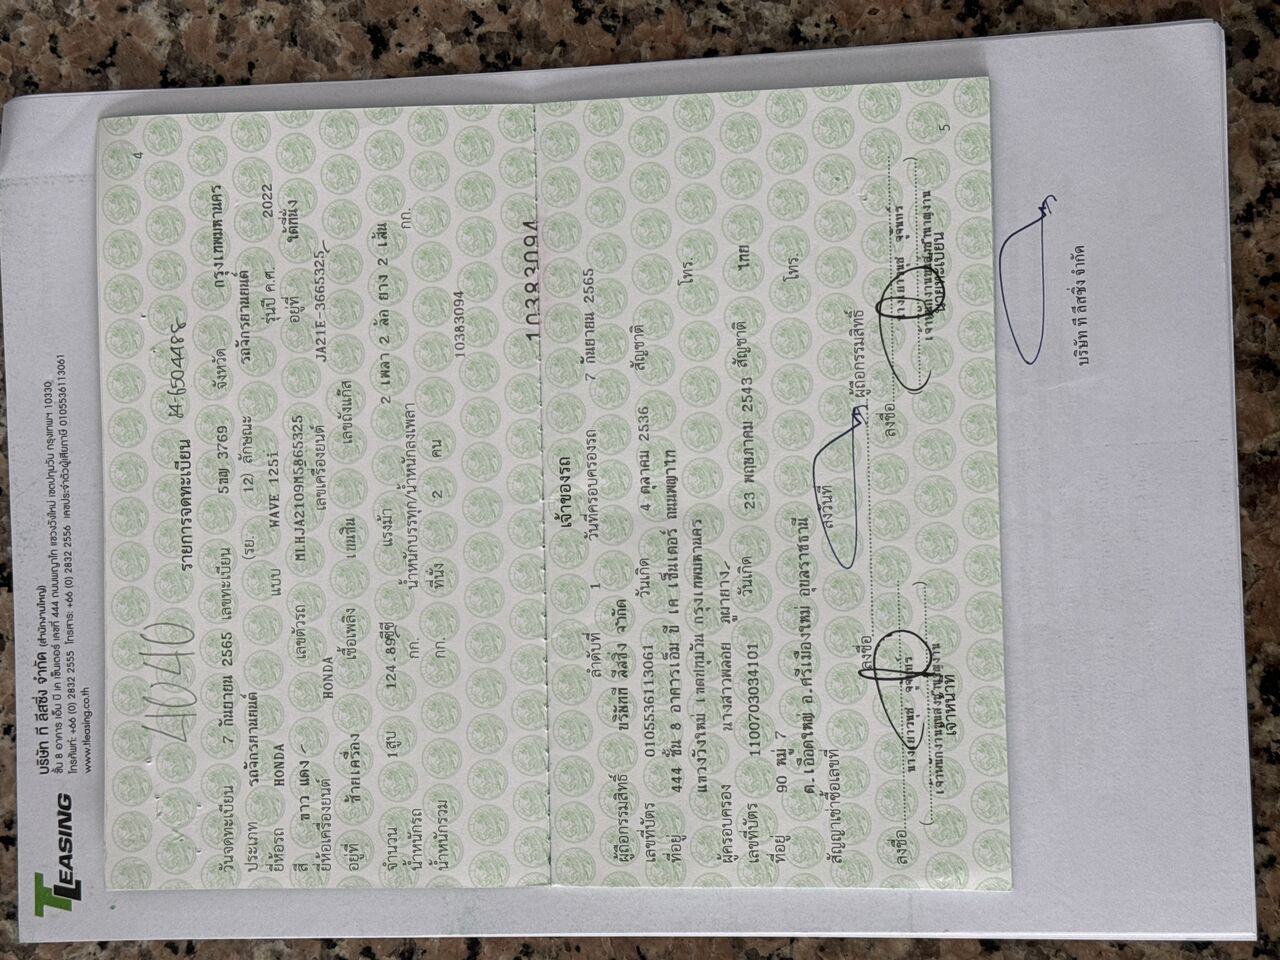 TLEASING
บริษัท ที ลีสซิ่ง จำกัด (สำนักงานใหญ่)
ชั้น 8 อาคาร เอ็ม บี เค เซ็นเตอร์ เลขที่ 444 ถนนพญาไท แขวงวังใหม่ เขตปทุมวัน กรุงเทพฯ 10330
โทรศัพท์: +66 (0) 2832 2555 โทรสาร: +66 (0) 2832 2556 เลขประจำตัวผู้เสียภาษี 0105536113061
www.tleasing.co.th
4
41040
84-6504488
รายการจดทะเบียน
วันจดทะเบียน 7 กันยายน 2565 เลขทะเบียน 5ขญ 3769 จังหวัด กรุงเทพมหานคร
ประเภท รถจักรยานยนต์ (รย. 12) ลักษณะ รถจักรยานยนต์
ยี่ห้อรถ HONDA แบบ WAVE 125i รุ่นปี ค.ศ. 2022
สี ขาว แดง เลขตัวรถ MLHJA2109M5865325 อยู่ที่ ใต้ที่นั่ง
ยี่ห้อเครื่องยนต์ HONDA เลขเครื่องยนต์ JA21E-3665325
อยู่ที่ ซ้ายเครื่อง เชื้อเพลิง เบนซิน เลขถังแก๊ส
จำนวน 1สูบ 124.89ซีซี แรงม้า 2 เพลา 2 ล้อ ยาง 2 เส้น
น้ำหนักรถ กก. น้ำหนักบรรทุก/น้ำหนักลงเพลา กก.
น้ำหนักรวม กก. ที่นั่ง 2 คน
10383094
10383094
เจ้าของรถ
ลำดับที่ 1 วันที่ครอบครองรถ 7 กันยายน 2565
ผู้ถือกรรมสิทธิ์ บริษัทที ลีสซิ่ง จำกัด
เลขที่บัตร 0105536113061 วันเกิด 4 ตุลาคม 2536 สัญชาติ
ที่อยู่ 444 ชั้น 8 อาคารเอ็ม บี เค เซ็นเตอร์ ถนนพญาไท โทร.
แขวงวังใหม่ เขตปทุมวัน กรุงเทพมหานคร
ผู้ครอบครอง นางสาวพลอย ภูผายาง
เลขที่บัตร 1100703034101 วันเกิด 23 พฤษภาคม 2543 สัญชาติ ไทย
ที่อยู่ 90 หมู่ 7 โทร.
ต.เอือดใหญ่ อ.ศรีเมืองใหม่ อุบลราชธานี
สัญญาเช่าซื้อเลขที่ ลงวันที่
ลงชื่อ ผู้ถือกรรมสิทธิ์
ลงชื่อ ลงชื่อ
นางเยาวนุช จุจันทร์ นางเยาวนุช จุจันทร์
เจ้าพนักงานขนส่งชำนาญงาน เจ้าพนักงานขนส่งชำนาญงาน
เจ้าหน้าที่ นายทะเบียน
5
บริษัท ที ลีสซิ่ง จำกัด